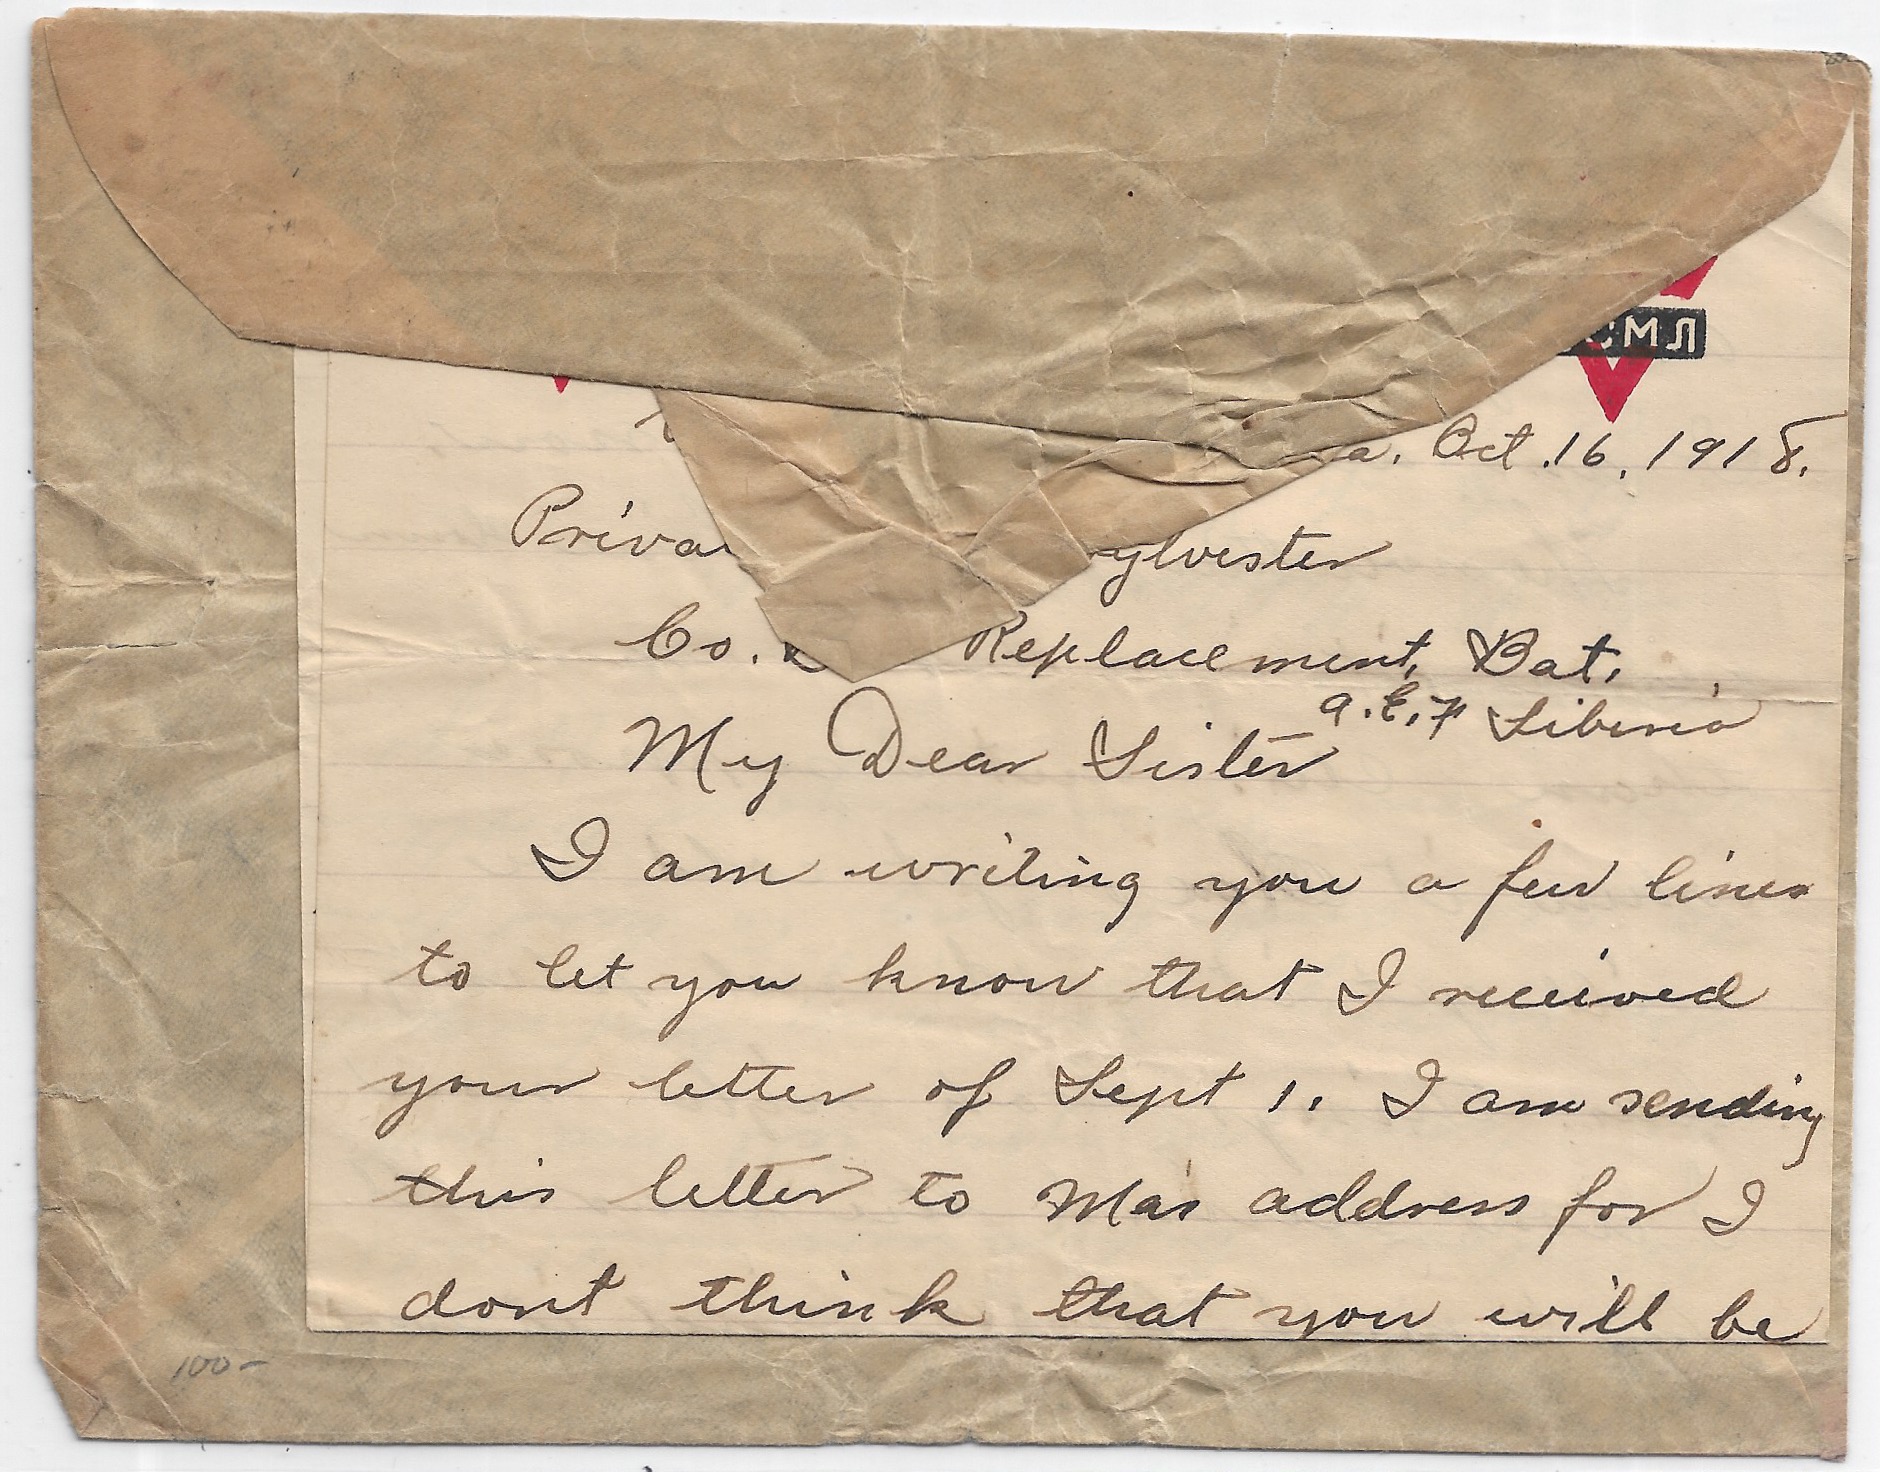 СМЛ
a. Oct. 16, 1918.
Priva ylvester
Co. Replacement, Bat.
A.E.F Siberia
My Dear Sister
I am writing you a few lines
to let you know that I received
your letter of Sept 1. I am sending
this letter to Ma's address for I
don't think that you will be
100-